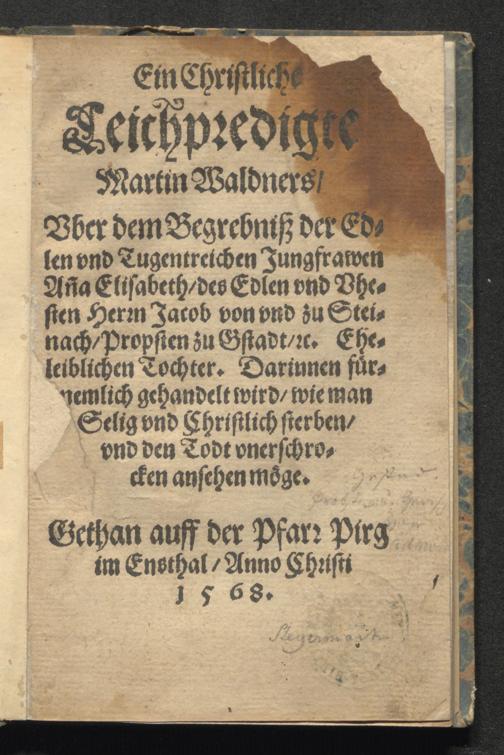 Ein Christliche
Leichpredigte
Martin Waldners/
Vber dem Begrebniß der Ed⸗
len vnd Tugentreichen Jungfrawen
Aña Elisabeth/des Edlen vnd Vhe⸗
sten Herrn Jacob von vnd zu Stei⸗
nach/Propsten zu Gstadt/ꝛc. Ehe⸗
leiblichen Tochter. Darinnen für⸗
nemlich gehandelt wird/wie man
Selig vnd Christlich sterben/
vnd den Todt vnerschro⸗
cken ansehen möge.
Gethan auff der Pfarr Pirg
im Ensthal/Anno Christi
1568.
Steyermark